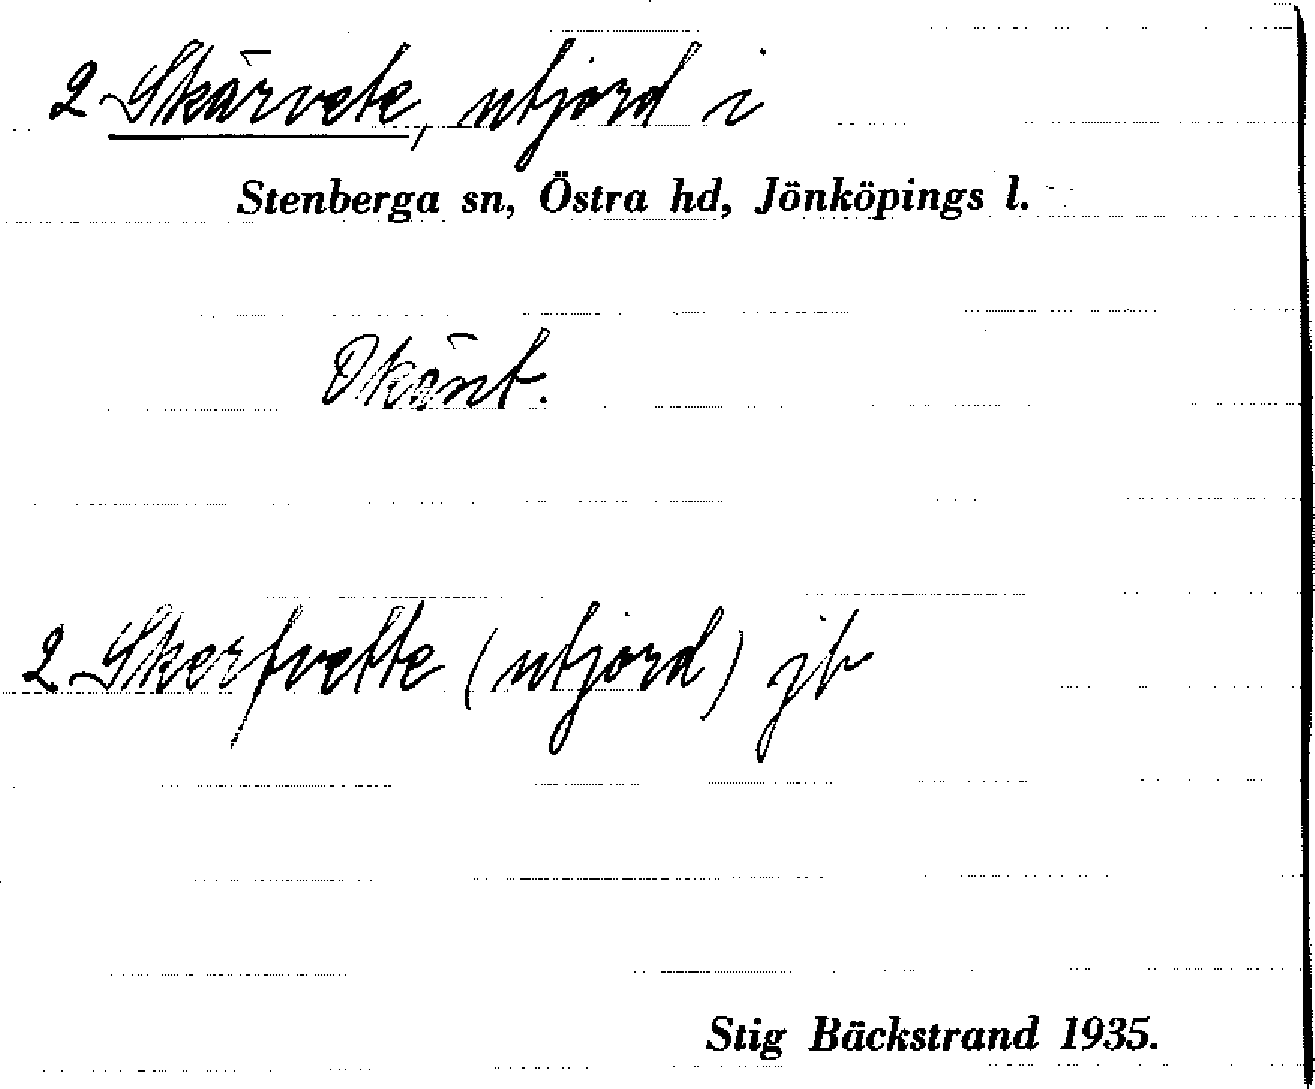 2 Skärvete, utjord i
Stenberga sn, Östra hd, Jönköpings l.
Okänt.
2 Skerfvette (utjord) jb
Stig Bäckstrand 1935.